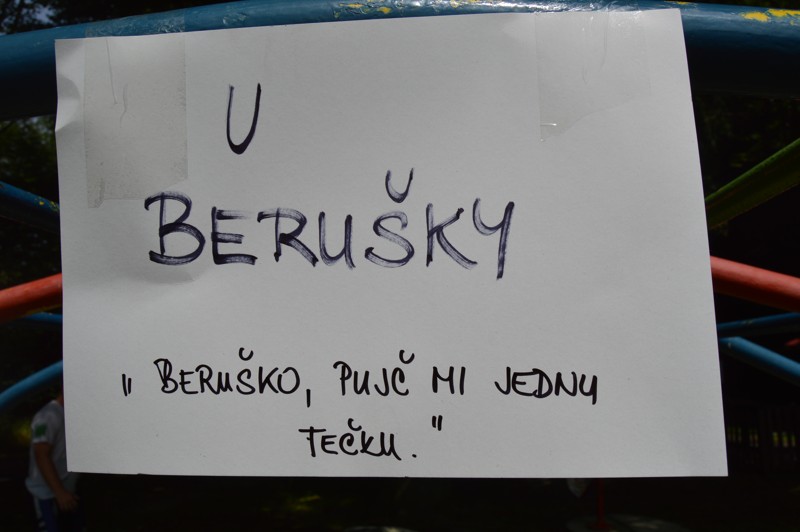 U
BERUŠKY
" BERUŠKO, PUJČ MI JEDNU
TEČKU."